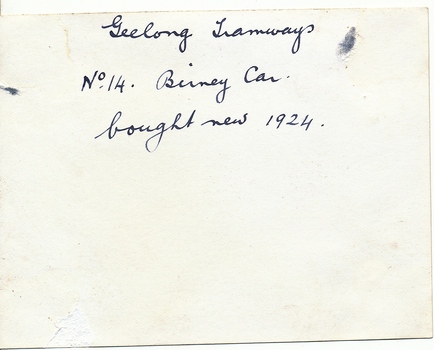 Geelong Tramways
No. 14. Birney Car.
bought new 1924.